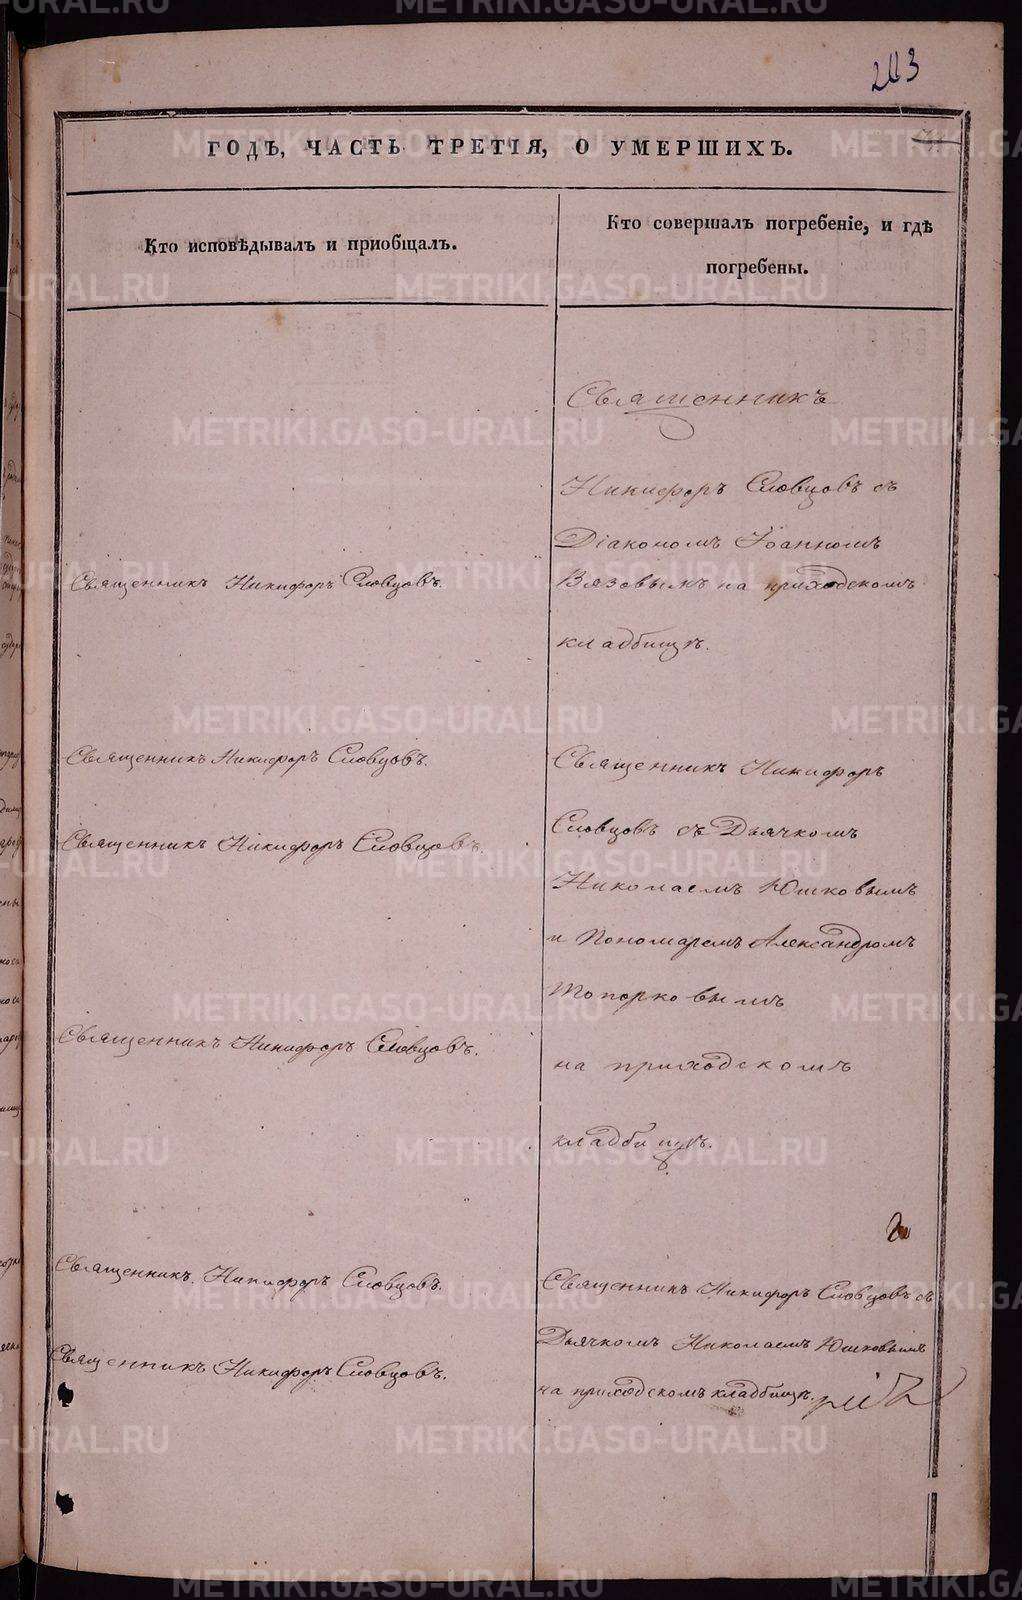 213
ГОДЪ, ЧАСТЬ ТРЕТІЯ, О УМЕРШИХЪ.
Кто исповѣдывалъ и приобщалъ.
Кто совершалъ погребеніе, и гдѣ
погребены.
Священникъ
Никифоръ Словцовъ съ
Діакономъ Іоанномъ
Священникъ Никифоръ Словцовъ.
Вязовымъ на приходскомъ
кладбищѣ.
Священникъ Никифоръ Словцовъ.
Священникъ Никифоръ
Словцовъ съ Дьячкомъ
Священникъ Никифоръ Словцовъ.
Николаемъ Юшковымъ
и Пономаремъ Александромъ
Топорковымъ
Священникъ Никифоръ Словцовъ.
на приходскомъ
кладбищѣ.
Священникъ Никифоръ Словцовъ.
Священникъ Никифоръ Словцовъ съ
Дьячкомъ Николаемъ Юшковымъ
Священникъ Никифоръ Словцовъ.
на приходскомъ кладбищѣ.
METRIKI.GASO-URAL.RU